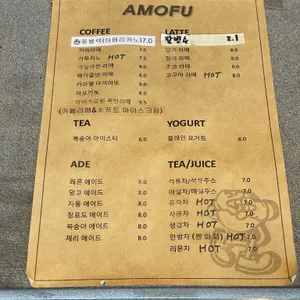 AMOFU
COFFEE
롱블랙(아메리카노)7.0
카페라떼 7.5
카푸치노 HOT 7.5
바닐라빈 라떼 8.0
헤이즐넛 라떼 8.0
카라멜 마끼아또 8.0
아포가토 8.0
아이스크림 라떼 9.5
LATTE
딸기 라떼 8.0
말차 라떼 8.0
초코 라떼 8.0
고구마 라떼 HOT 8.0
TEA
복숭아 아이스티 6.0
YOGURT
플레인 요거트 8.0
ADE
레몬 에이드 8.0
망고 에이드 8.0
자몽 에이드 8.0
청포도 에이드 8.0
복숭아 에이드 8.0
체리 에이드 8.0
TEA/JUICE
석류차/석류주스 7.0
매실차/매실주스 7.0
유자차 HOT 7.0
자몽차 HOT 7.0
생강차 HOT 7.0
한방차(쌍화차) HOT 7.0
레몬차 HOT 7.0